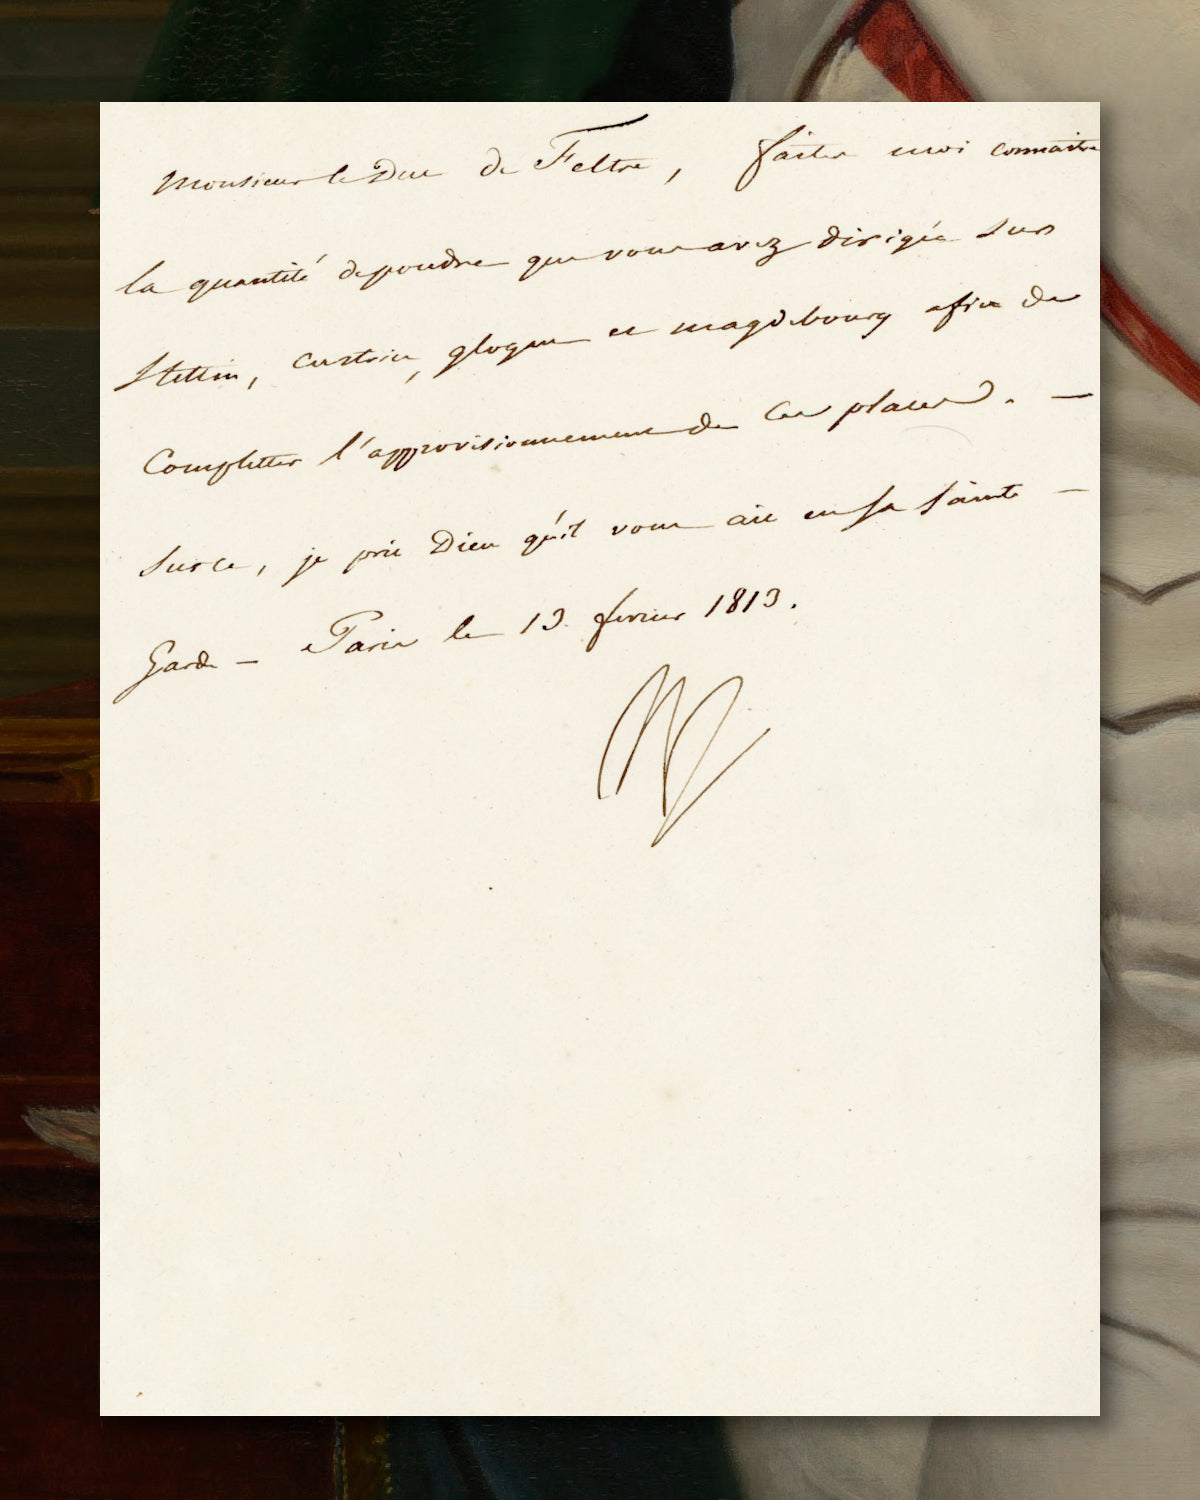 Monsieur le Duc de Feltre, faites moi connaitre
la quantité de poudre que vous avez dirigée sur
Stettin, custrin, glogau et magdebourg afin de
Completter l'approvisionnement de Ces places. —
Sur ce, je prie Dieu qu'il vous ait en sa Sainte —
Garde — Paris le 13. fevrier 1813.